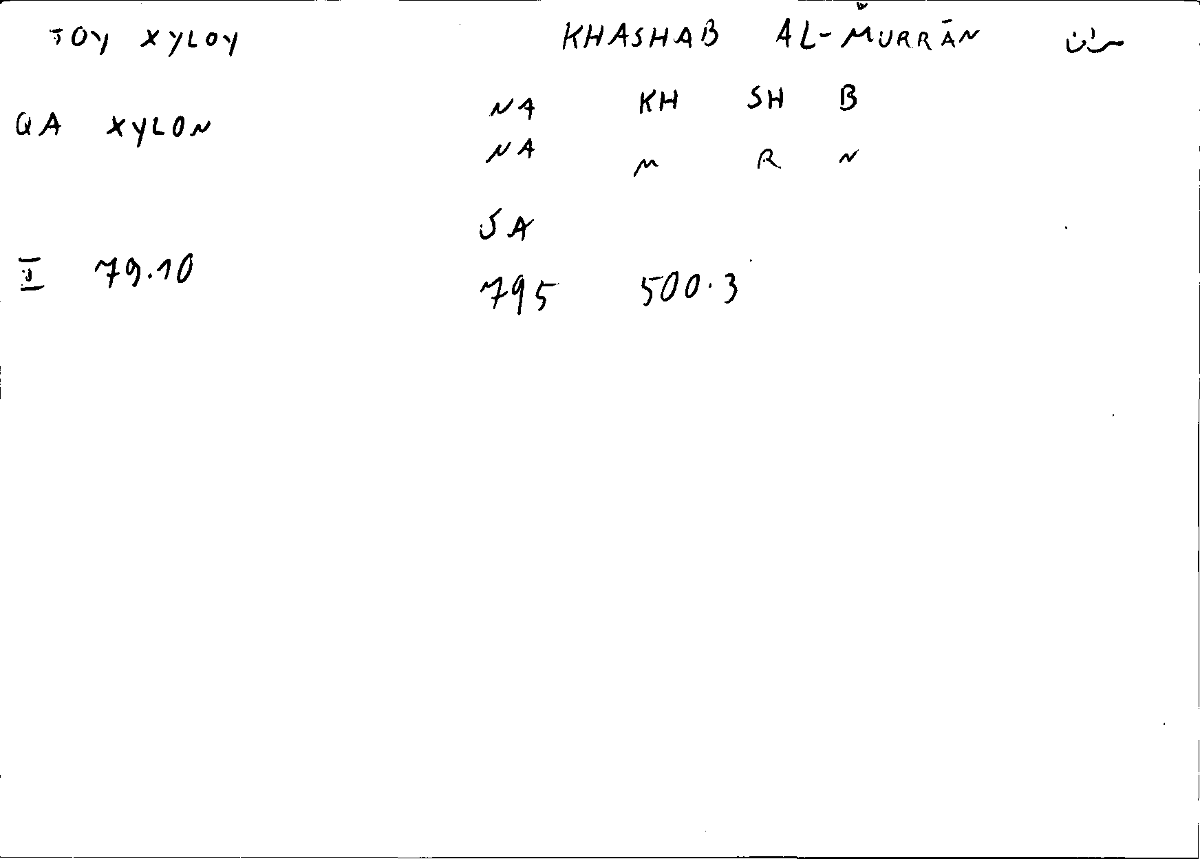 TOY XYLOY KHASHAB AL-MURRĀN مران
QA XYLON NA KH SH B
NA M R N
SA
I 79.10 795 500.3